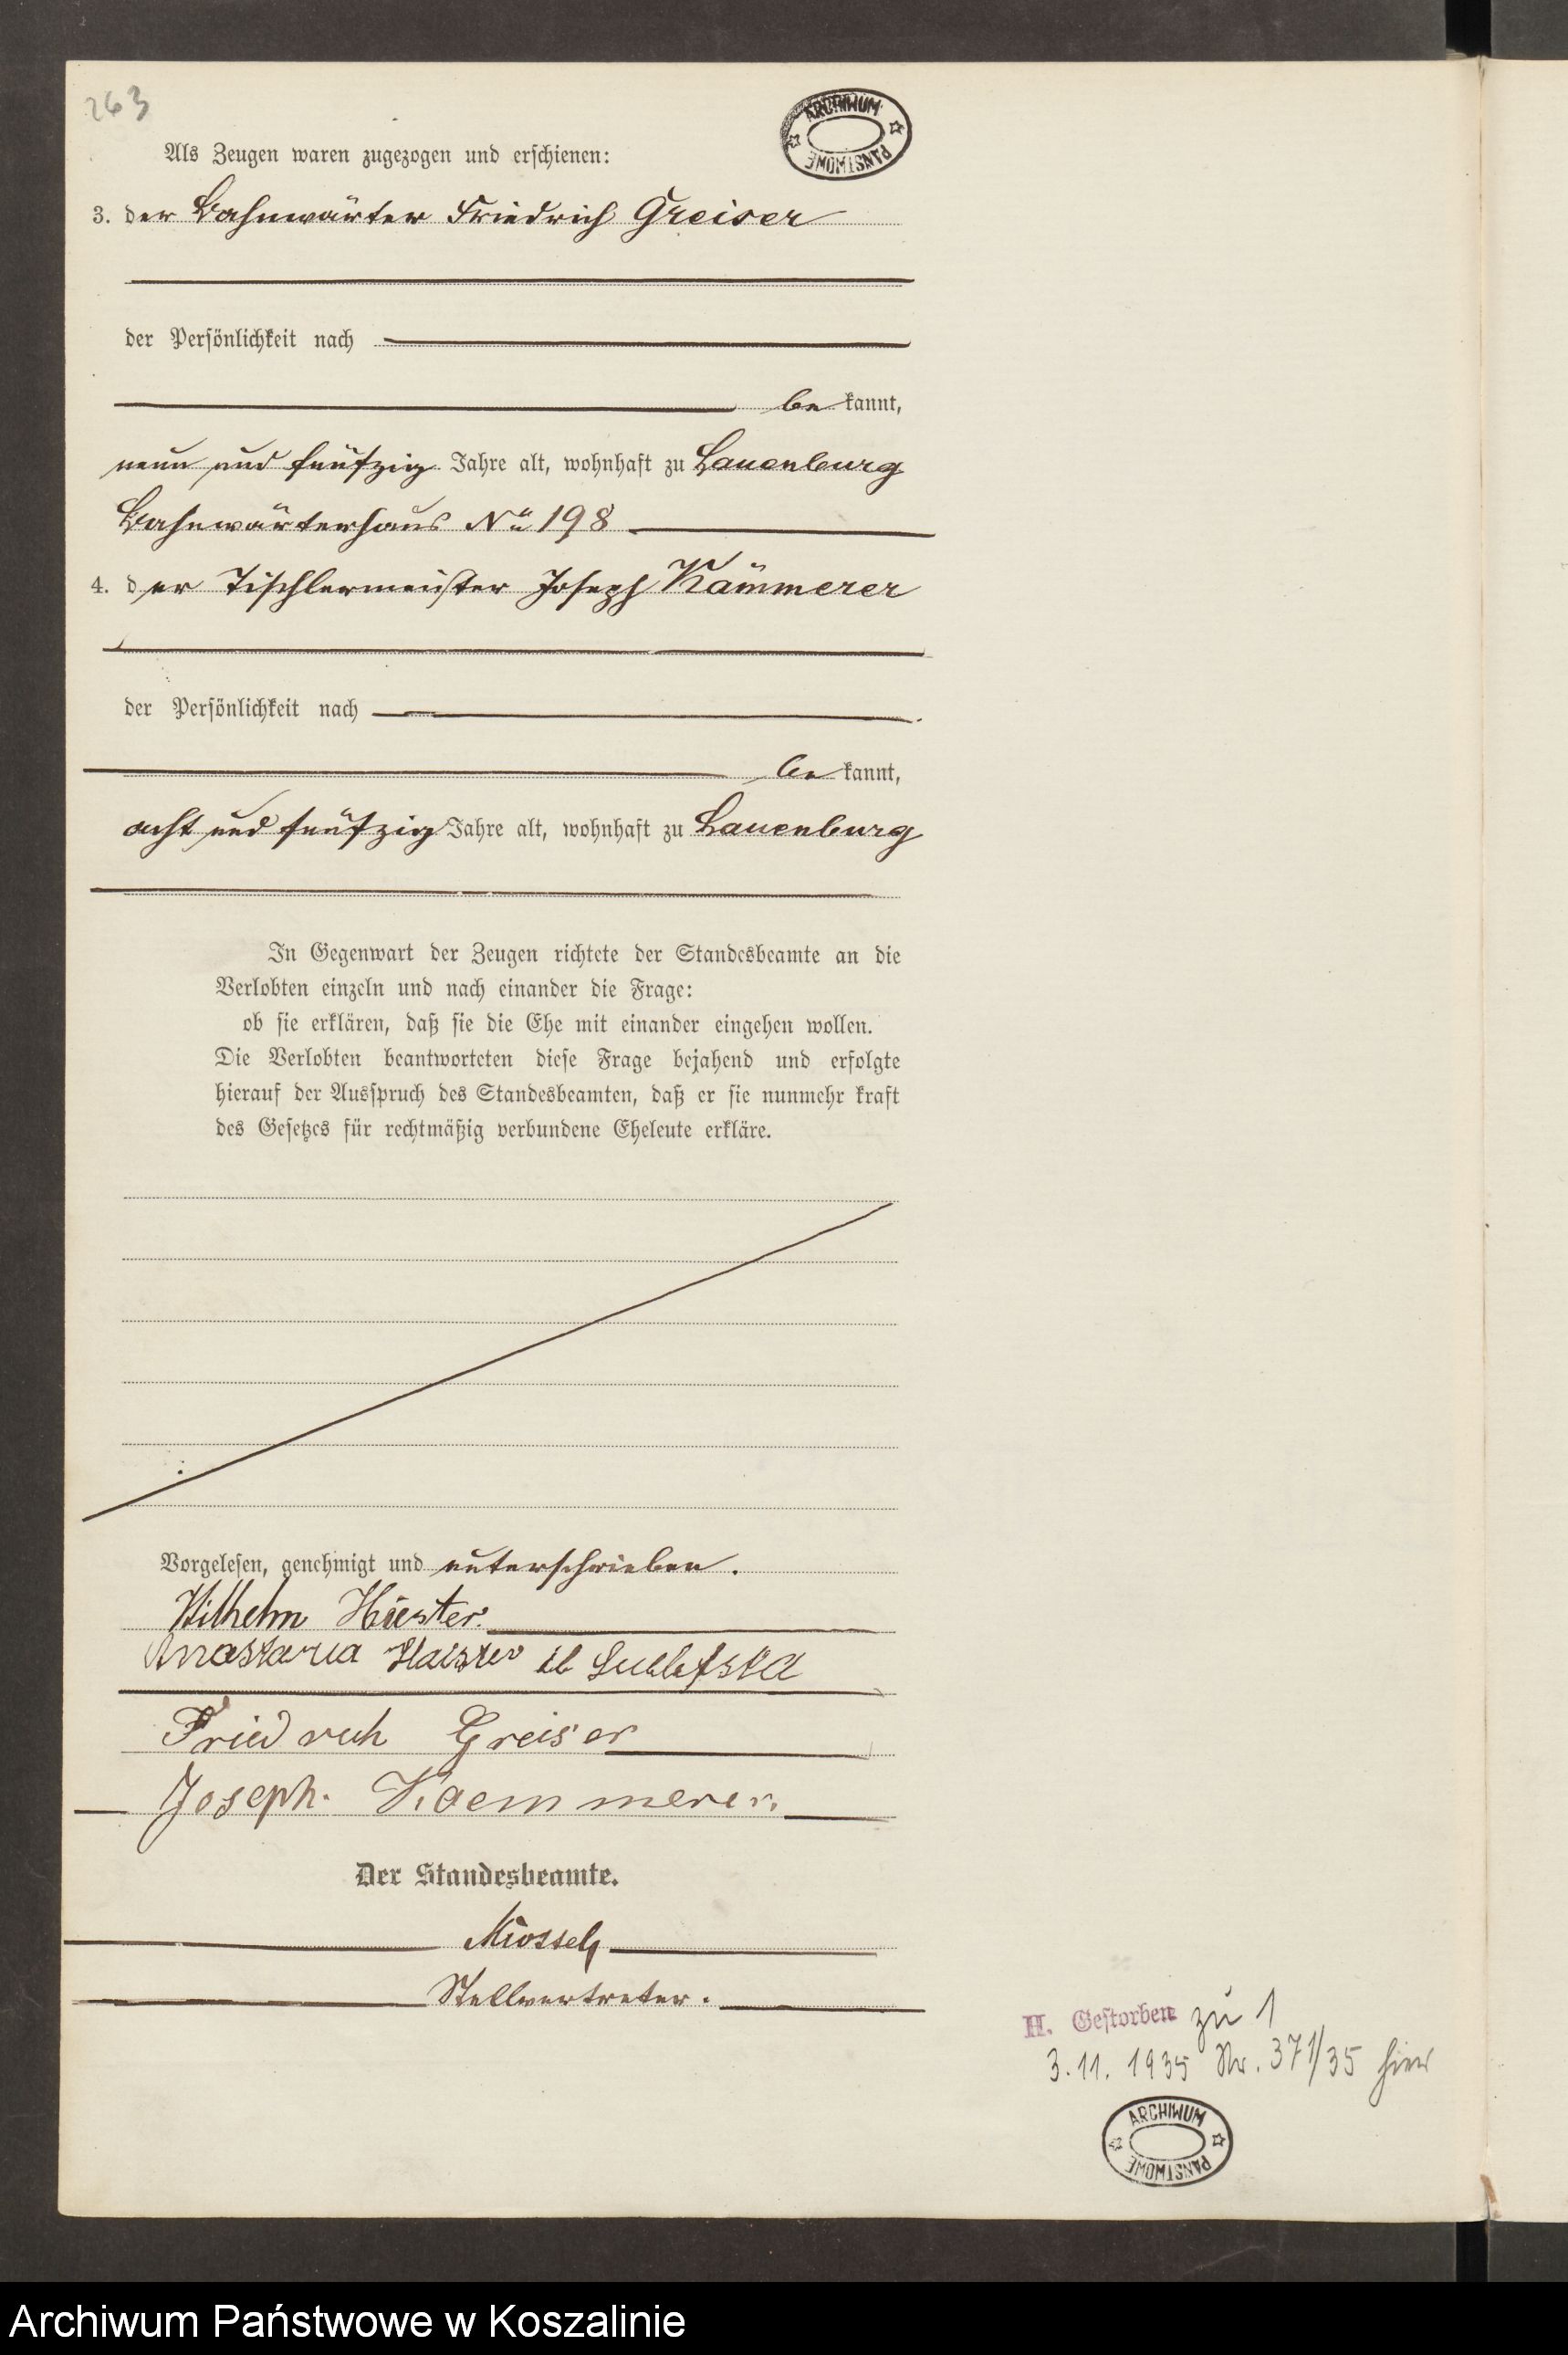 263
ARCHIWUM PAŃSTWOWE
Als Zeugen waren zugezogen und erschienen:
3. der Bahnwärter Friedrich Greiser
der Persönlichkeit nach
be kannt,
neun und fünfzig Jahre alt, wohnhaft zu Lauenburg
Bahnwärterhaus No 198
4. der Tischlermeister Joseph Kämmerer
der Persönlichkeit nach
be kannt,
acht und fünfzig Jahre alt, wohnhaft zu Lauenburg
In Gegenwart der Zeugen richtete der Standesbeamte an die
Verlobten einzeln und nach einander die Frage:
ob sie erklären, daß sie die Ehe mit einander eingehen wollen.
Die Verlobten beantworteten diese Frage bejahend und erfolgte
hierauf der Ausspruch des Standesbeamten, daß er sie nunmehr kraft
des Gesetzes für rechtmäßig verbundene Eheleute erkläre.
Vorgelesen, genehmigt und unterschrieben.
Wilhelm
Friedrich Greiser
Joseph. Kaemmerer.
Der Standesbeamte.
Stellvertreter.
H. Gestorben zu 1
3.11. 1935 Nr. 371/35 hier
ARCHIWUM PAŃSTWOWE
Archiwum Państwowe w Koszalinie